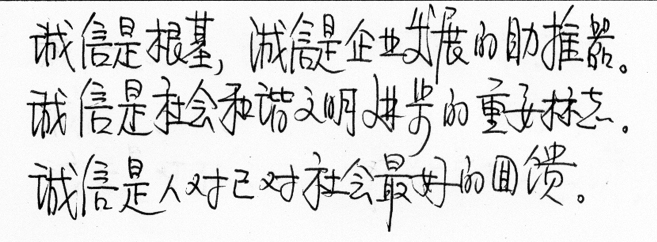 诚信是根基，诚信是企业发展的助推器。
诚信是社会和谐文明进步的重要标志。
诚信是人对己对社会最好的回馈。